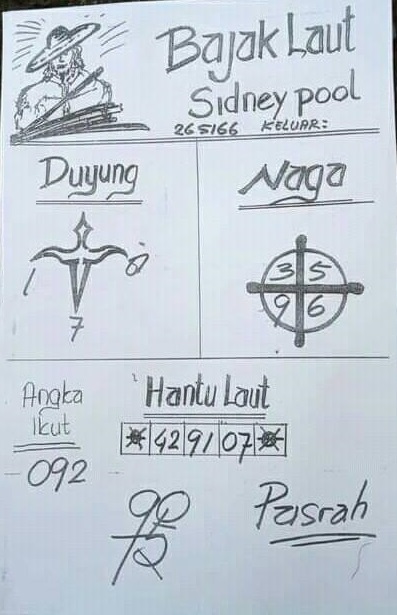 Bajak Laut
Sidney pool
265166 KELUAR:
Duyung
1 8
7
Naga
3 5
9 6
Angka
ikut
092
Hantu Laut
42 91 07
90
75
Pasrah